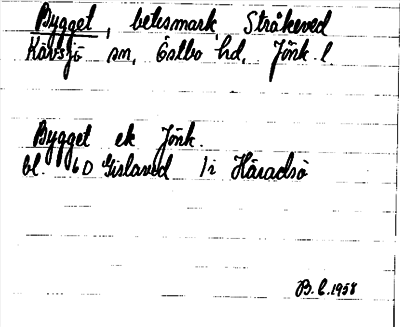 Bygget, betesmark, Stråkeved
Kävsjö sn, Östbo hd, Jönk. l.
Bygget ek Jönk.
bl. 6D Gislaved 1i Häradsö
B.E. 1958